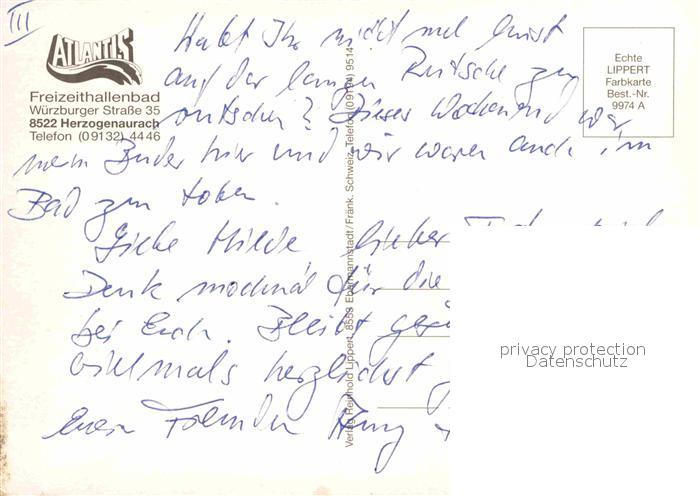 III
ATLANTIS
Freizeithallenbad
Würzburger Straße 35
8522 Herzogenaurach
Telefon (0 91 32) 44 46
Echte
LIPPERT
Farbkarte
Best.-Nr.
9974 A
Habt Ihr nicht mal Lust
auf der langen Rutsche zu
rutschen? Dieses Wochenend war
mein Bruder hier und wir waren auch im
Bad zum toben.
Liebe Hilde, lieber
Dank nochmal für die
bei Euch. Bleibt
vielmals herzlichst
Eure
Verlag Reinhold Lippert, 8553 Ebermannstadt/Fränk. Schweiz, Telefon (09194) 9514
privacy protection
Datenschutz